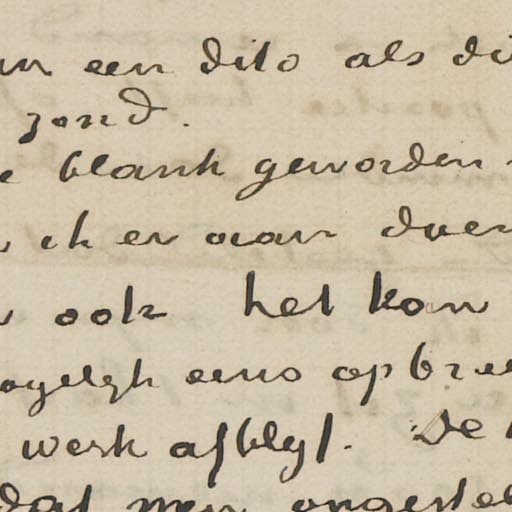 een dito als di
zond.
e blank geworden
ik er aan doen
ook het kon
ogelyk eens opbre
werk afblyf. De
dat men ongestel